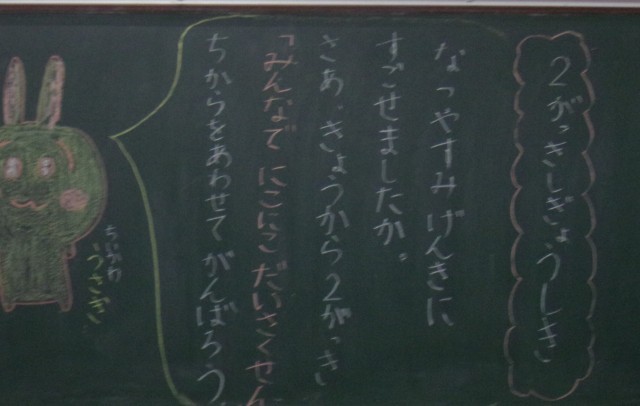 2がっきしぎょうしき
なつやすみ げんきに
すごせましたか。
さあ、きょうから2がっき
「みんなで にこにこ だいさくせん
ちからをあわせて がんばろう
ちいかわ
うさぎ